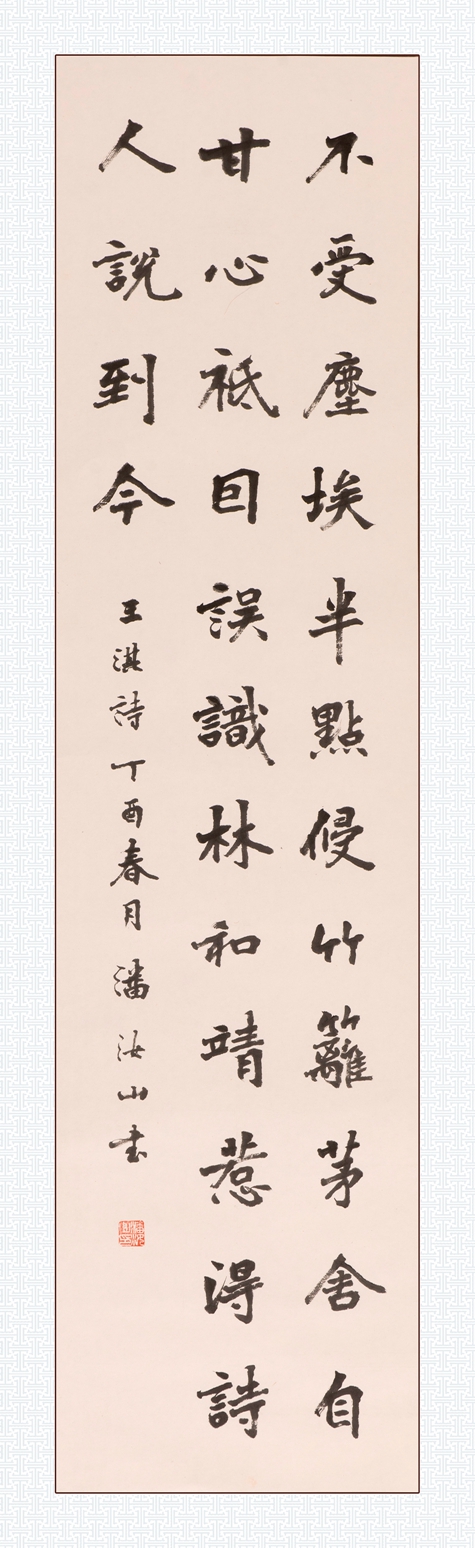 不受塵埃半點侵竹籬茅舍自
甘心祗囙誤識林和靖惹得詩
人說到今
王淇詩丁酉春月潘汝山书